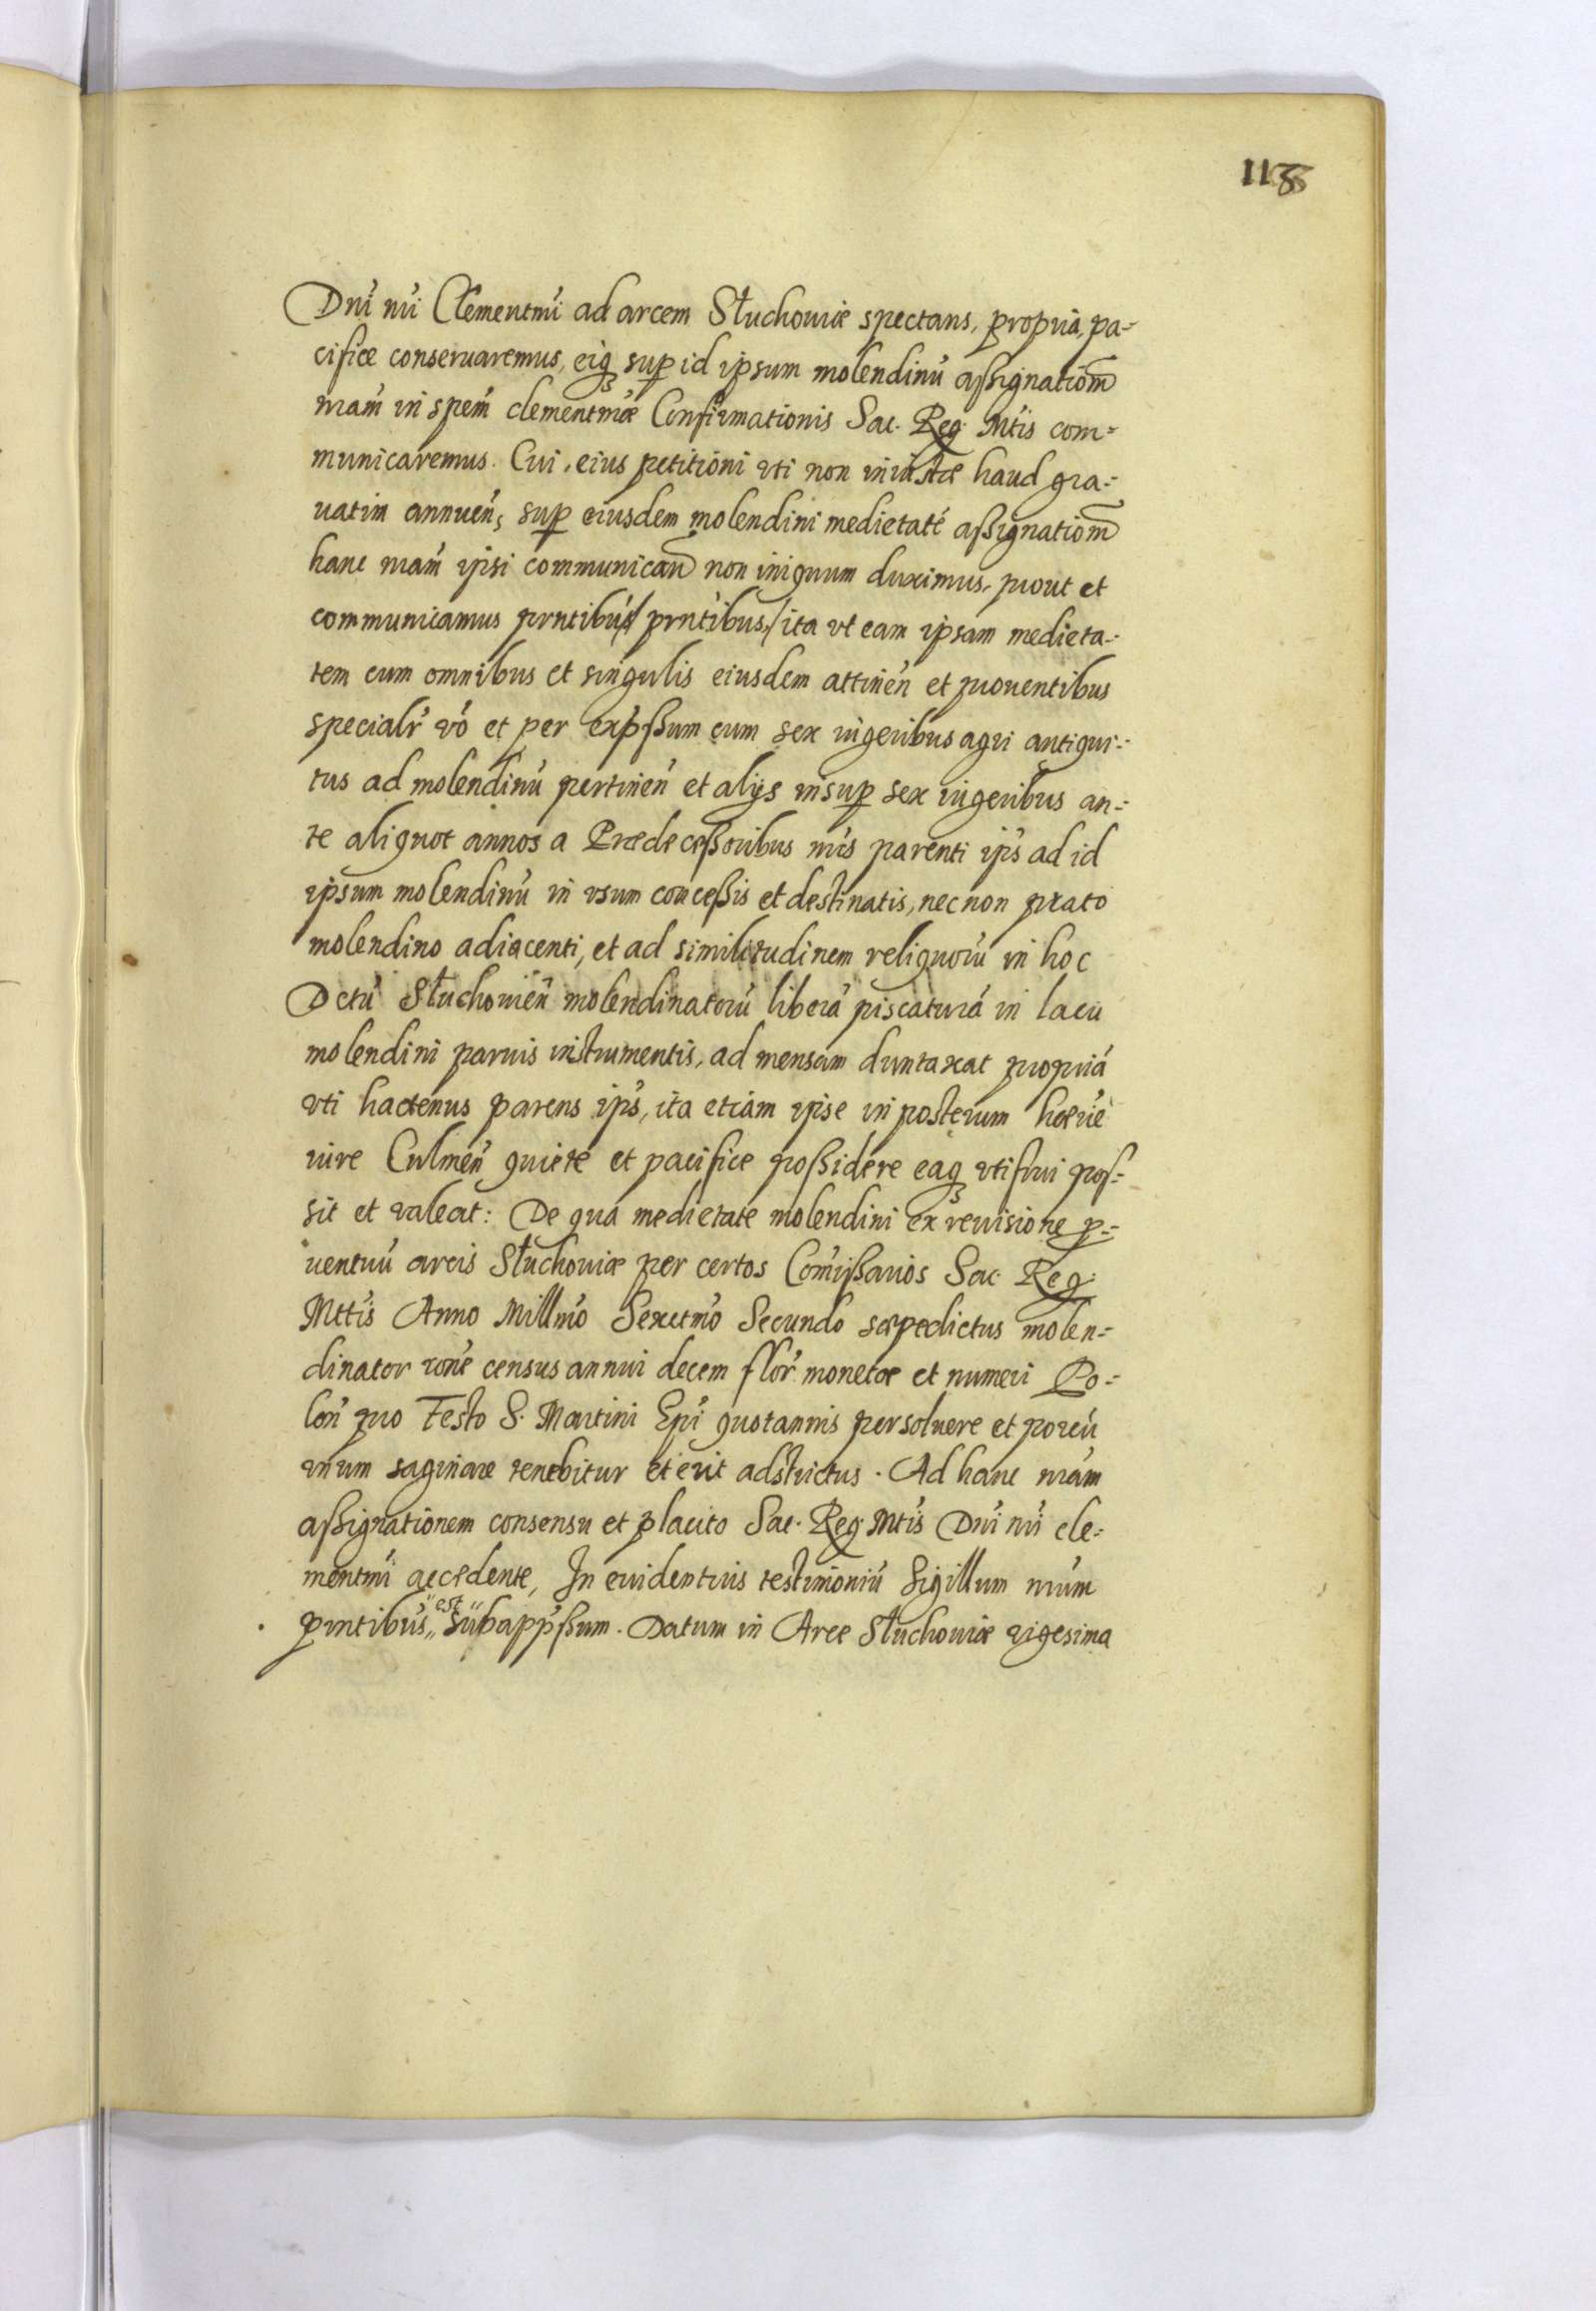 118
Dni nri Clementmi ad arcem Słuchoviæ spectans, propria, pa-
cifice conservaremus, eiq3 sup id ipsum molendinu assignatiom
nram in spem clementmæ Confirmationis Sac. Reg. Mtis com-
municaremus. Cui eius petitioni uti non iniustæ haud gra-
vatim annuen, sup eiusdem molendini medietate assignatiom
hanc nram ipsi communican non iniquum duximus, prout et
communicamus prntibus/ prntibus,/ ita ut eam ipsam medieta-
tem cum omnibus et singulis eiusdem attinen et proventibus
specialr vo et per exprssum cum sex iugeribus agri antiqui-
tus ad molendinu pertinen et alijs insup sex iugeribus an-
te aliquot annos a Prædecessoribus nris parenti ips ad id
ipsum molendinu in usum concessis et destinatis, nec non prato
molendino adiacenti, et ad similitudinem reliquoru in hoc
Dctu Słuchovien molendinatoru libera piscatura in lacu
molendini parvis instrumentis, ad mensam duntaxat propria
uti hactenus parens ips, ita etiam ipse in posterum hærie
iure Culmen quiete et pacifice possidere eaq3 utifrui pos-
sit et valeat: De qua medietate molendini ex revisione p-
ventuu arcis Słuchoviæ per certos Comissarios Sac. Reg.
Mttis Anno Millmo Sexctmo Secundo sæpedictus molen-
dinator rone census annui decem flor monetæ et numeri Po-
lon pro Festo S. Martini Epi quotannis persolvere et porcu
unum saginare tenebitur et erit adstrictus. Ad hanc nram
assignationem consensu et placito Sac. Reg. Mtis Dni nri cle-
mentmi accedente, In evidentius testimoniu Sigillum nrum
prntibus „est“ subapprssum. Datum in Arce Słuchoviæ vigesima